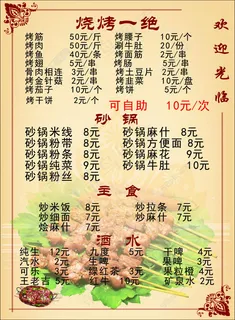 烧烤一绝
欢迎光临
烤筋 50元/斤 烤腰子 10元/个
烤肉 50元/斤 涮牛肚 20/份
烤鱼 40元/条 烤面筋 2元/串
烤翅 5元/串 烤肠 5元/串
骨肉相连 3元/串 烤土豆片 2元/串
烤金针菇 2元/串 烤韭菜 2元/串
烤茄子 10元/个 炖菜 10元/盘
烤干饼 2元/个
可自助 10元/次
砂锅
砂锅米线 8元 砂锅麻什 8元
砂锅粉带 8元 砂锅方便面 8元
砂锅粉条 8元 砂锅麻花 9元
砂锅炖菜 9元 砂锅牛肚 10元
砂锅粉丝 8元
主食
炒米饭 8元 炒拉条 7元
炒细面 7元 炒麻什 7元
烩麻什 7元
酒水
纯生 12元 九度 5元 干啤 4元
汽水 2元 生啤 果啤 3元
可乐 3元 冰红茶 3元 果粒橙 4元
王老吉 5元 红牛 10元 矿泉水 2元